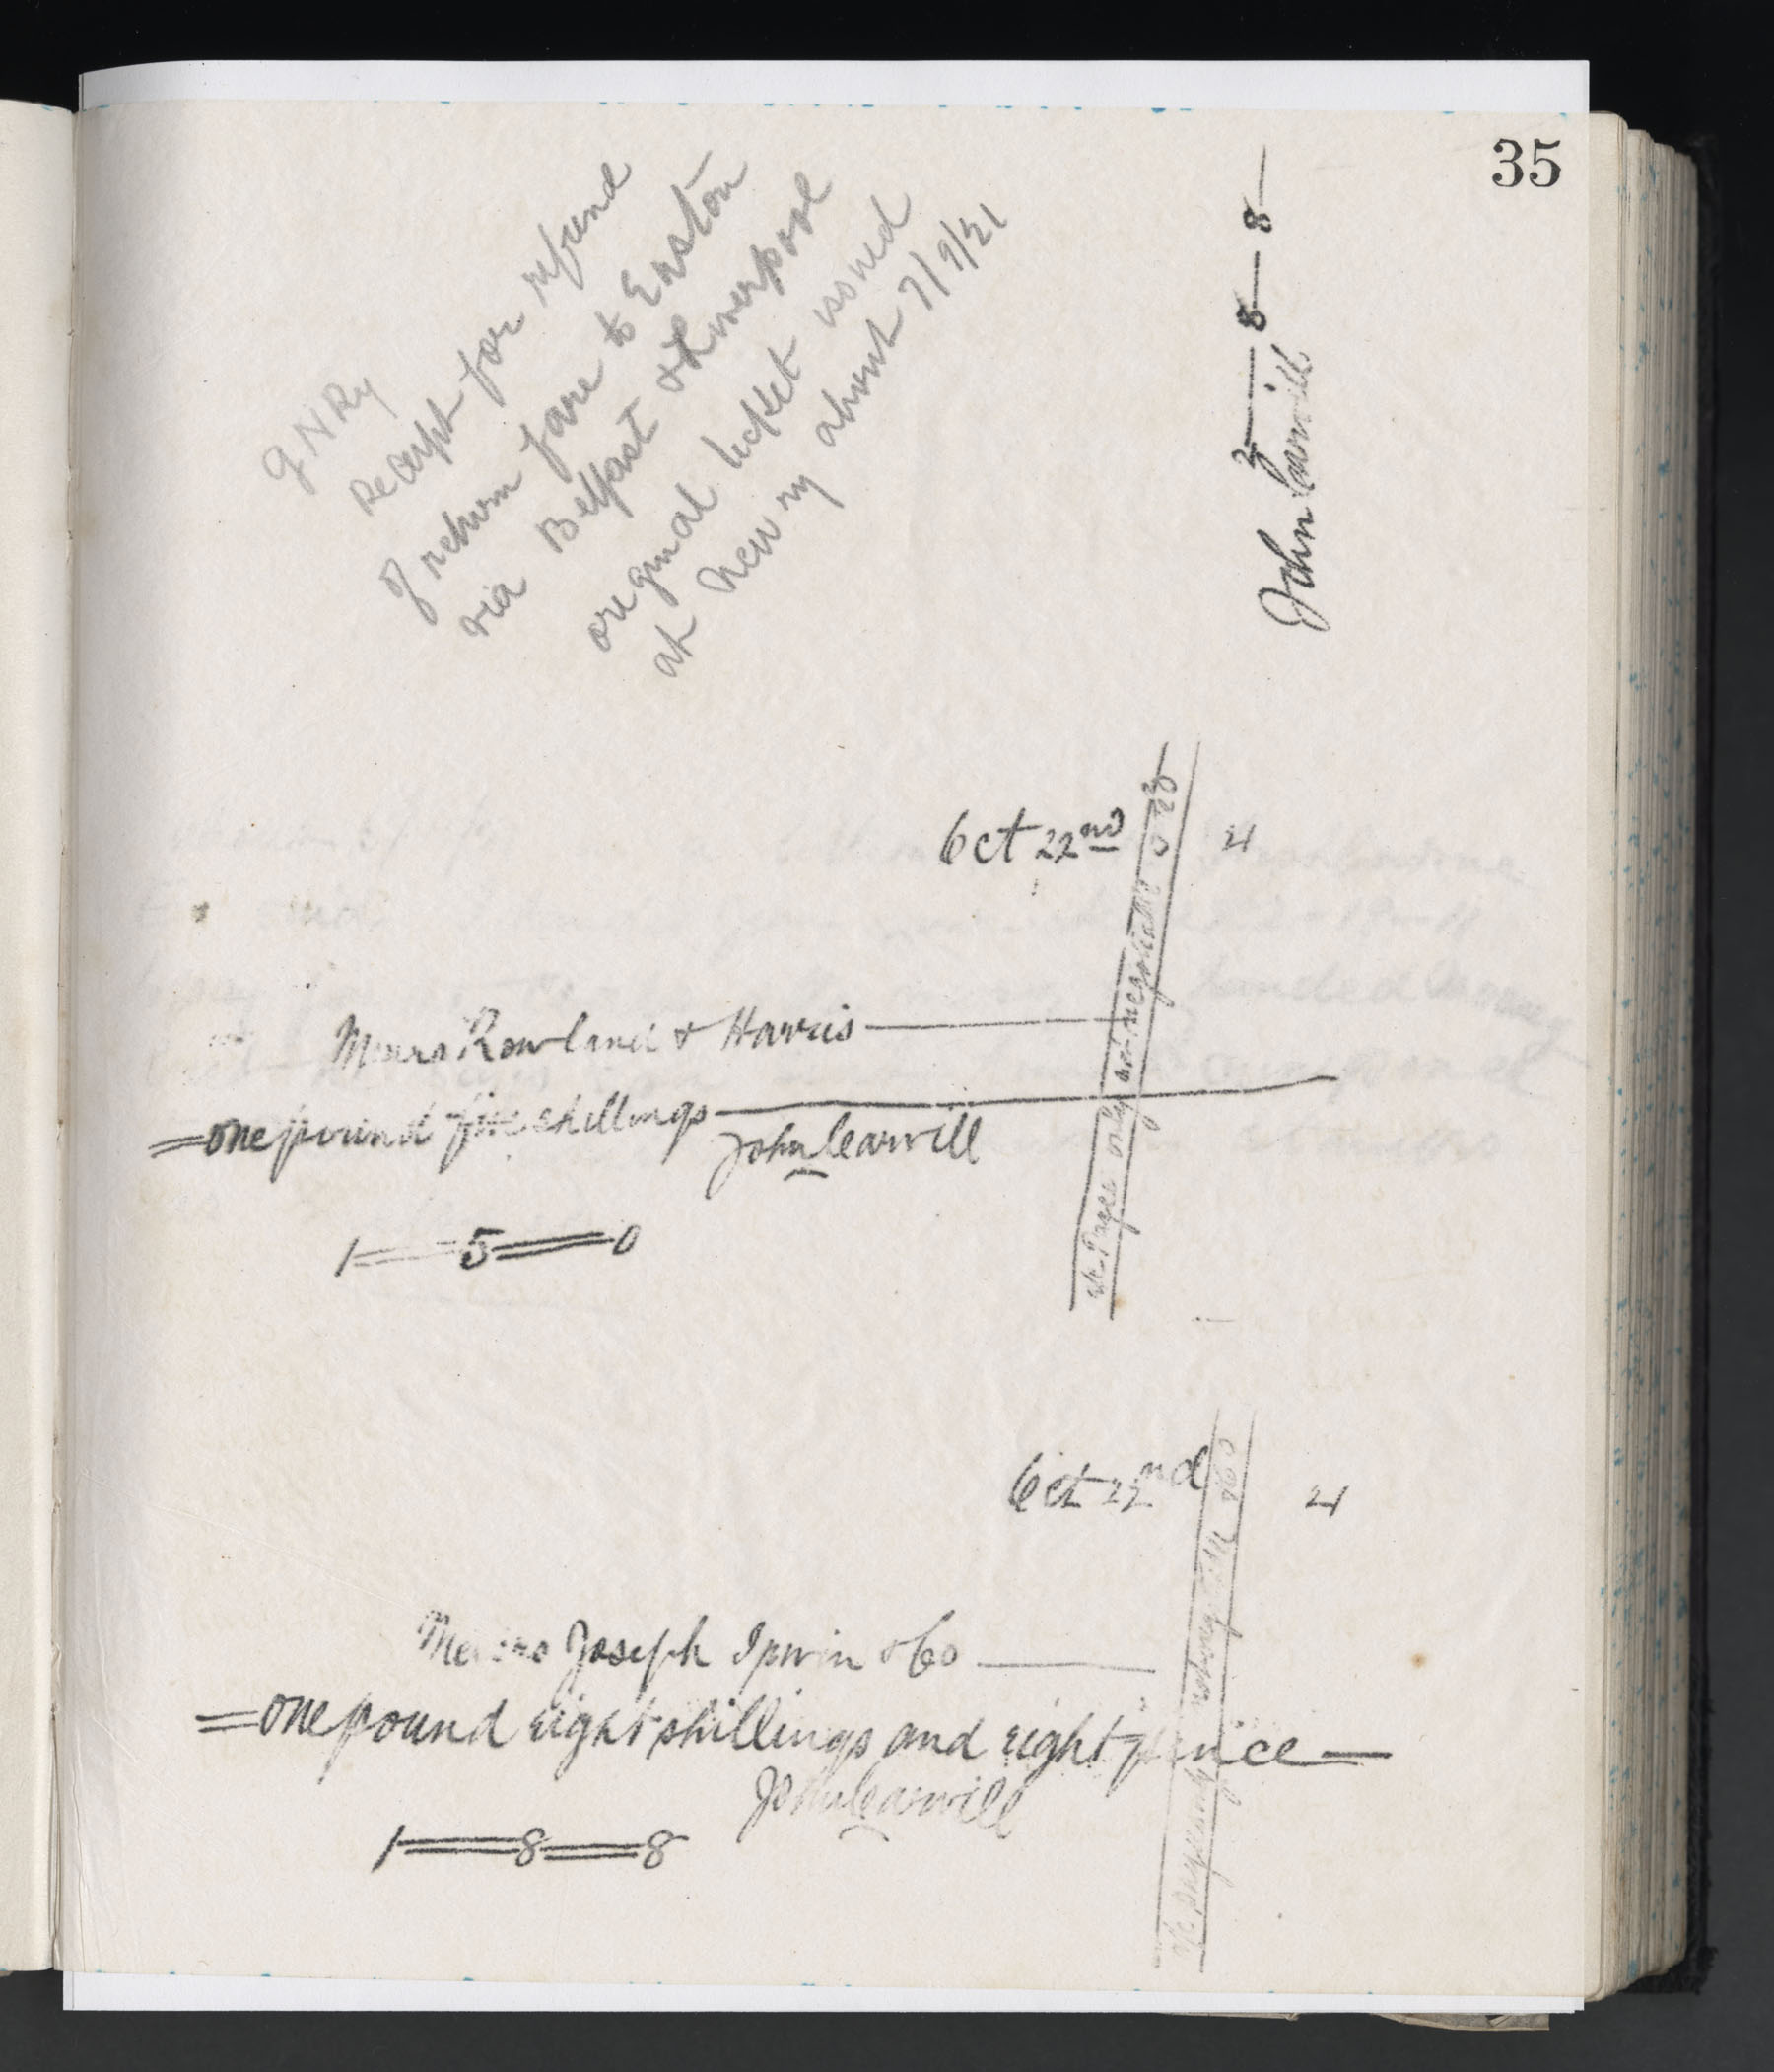 35
G N Ry
Receipt for refund
of return fare to Euston
via Belfast & Liverpool
original ticket issued
at Newry about 7/9/21
2 — 8 — 8 —
John Carvill
Oct 22nd 21
Messrs Rowland & Harris
= one pound five shillings
John Carvill
1 = 5 = 0
a/c Payee only not negotiable
Oct 22nd 21
Messrs Joseph Irwin & Co
= one pound eight shillings and eight pence
John Carvill
1 = 8 = 8